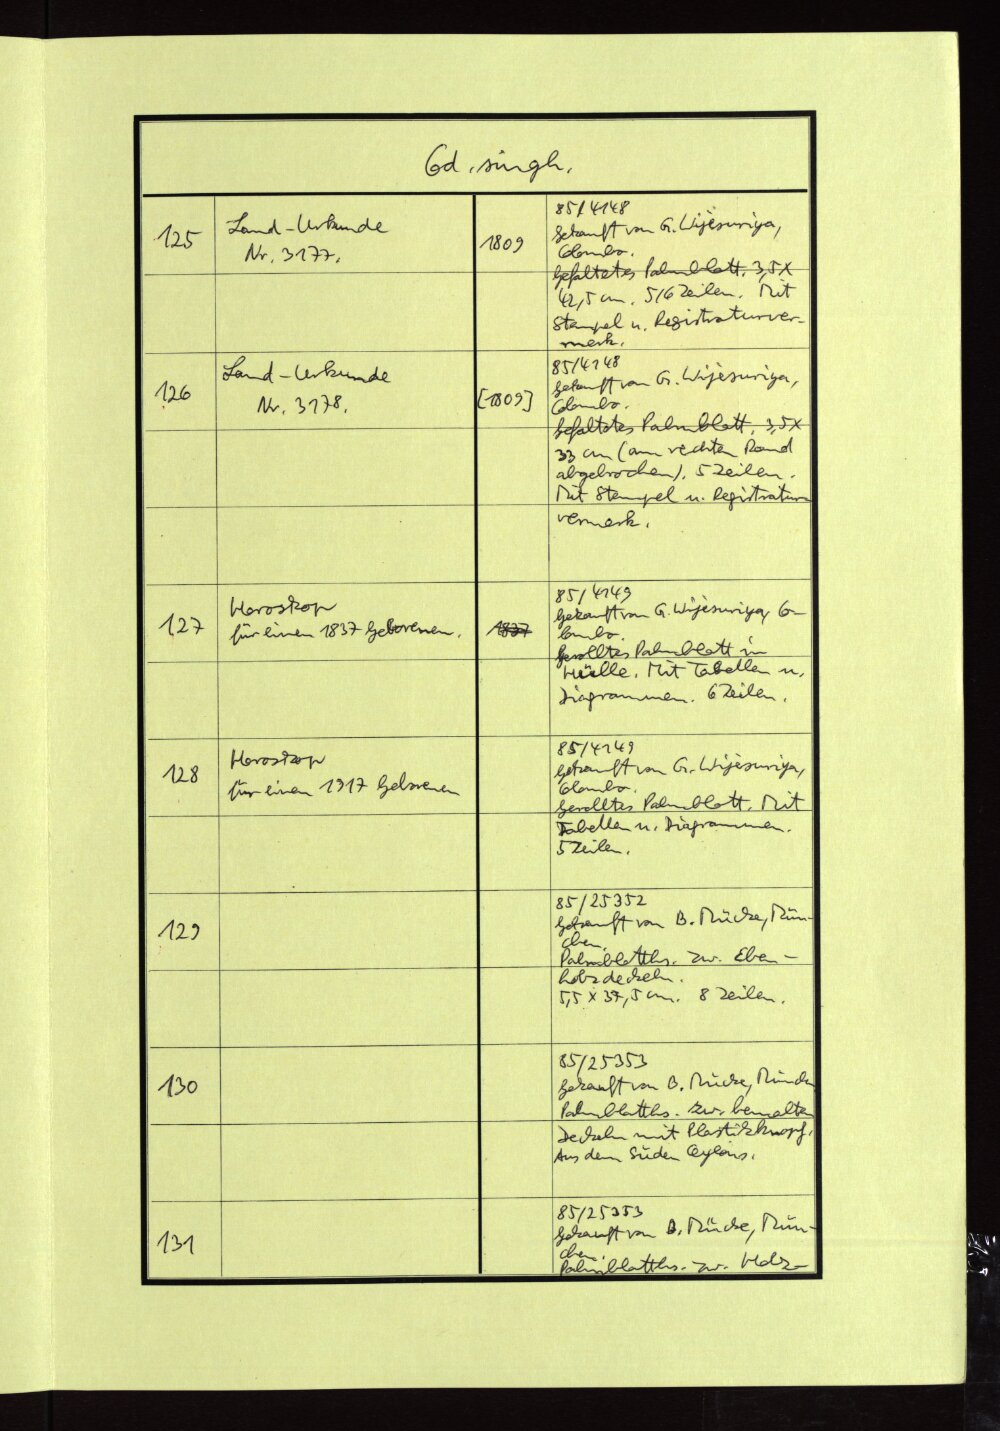 Cod. singh.
125
Land-Urkunde
Nr. 3177.
1809
85/4148
Gekauft von G. Wijèsuriya,
Colombo.
Gefaltetes Palmblatt. 3,5 x
42,5 cm. 5/6 Zeilen. Mit
Stempel u. Registraturver-
merk.
126
Land-Urkunde
Nr. 3178.
[1809]
85/4148
Gekauft von G. Wijèsuriya,
Colombo.
Gefaltetes Palmblatt. 3,5 x
33 cm (am rechten Rand
abgebrochen). 5 Zeilen.
Mit Stempel u. Registratur-
vermerk.
127
Horoskop
für einen 1837 Geborenen.
1837
85/4149
Gekauft von G. Wijèsuriya, Co-
lombo.
Gerolltes Palmblatt in
Hülle. Mit Tabellen u.
Diagrammen. 6 Zeilen.
128
Horoskop
für einen 1917 Geborenen
85/4149
Gekauft von G. Wijèsuriya,
Colombo.
Gerolltes Palmblatt. Mit
Tabellen u. Diagrammen.
5 Zeilen.
129
85/25352
Gekauft von B. Mücke, Mün-
chen.
Palmblatths. zw. Eben-
holzdeckeln.
5,5 x 37,5 cm. 8 Zeilen.
130
85/25353
Gekauft von B. Mücke, München
Palmblatths. zw. bemalten
Deckeln mit Plastikknopf.
Aus dem Süden Ceylons.
131
85/25353
Gekauft von B. Mücke, Mün-
chen.
Palmblatths. zw. Holz-